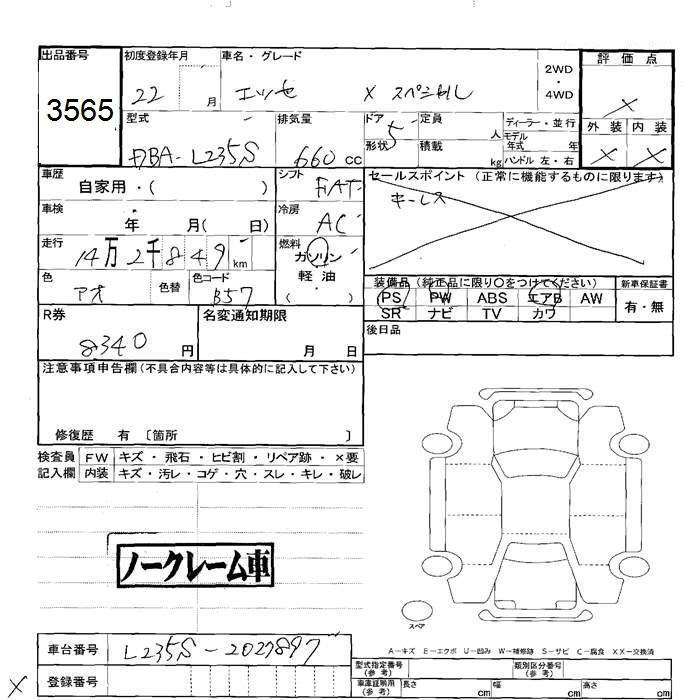 出品番号 初度登録年月 車名・グレード 評価点
3565 22 月 エッセ X スペシャル 2WD・4WD X
型式 排気量 ドア 5 定員 人 ディーラー・並行 外装 内装
DBA-L235S 660 cc 形状 積載 kg モデル年式 年 ハンドル 左・右 X X
車歴 自家用・( ) シフト FAT セールスポイント (正常に機能するものに限ります)
車検 年 月( 日) 冷房 AC キーレス
走行 14万2千849km 燃料 ガソリン
軽油
・( )
色 アオ 色替 色コード B57
装備品 (純正品に限り〇をつけてください) 新車保証書
PS PW ABS エアB AW 有・無
SR ナビ TV カワ
R券 8340 円 名変通知期限 月 日
後日品
注意事項申告欄(不具合内容等は具体的に記入して下さい)
修復歴 有 〔箇所 〕
検査員 FW キズ・飛石・ヒビ割・リペア跡・×要
記入欄 内装 キズ・汚レ・コゲ・穴・スレ・キレ・破レ
ノークレーム車
スペア
A－キズ E－エクボ U－凹み W－補修跡 S－サビ C－腐食 XX－交換済
車台番号 L235S-2027897
X 登録番号
型式指定番号(参考) 類別区分番号(参考)
車庫証明用(参考) 長さ cm 幅 cm 高さ cm